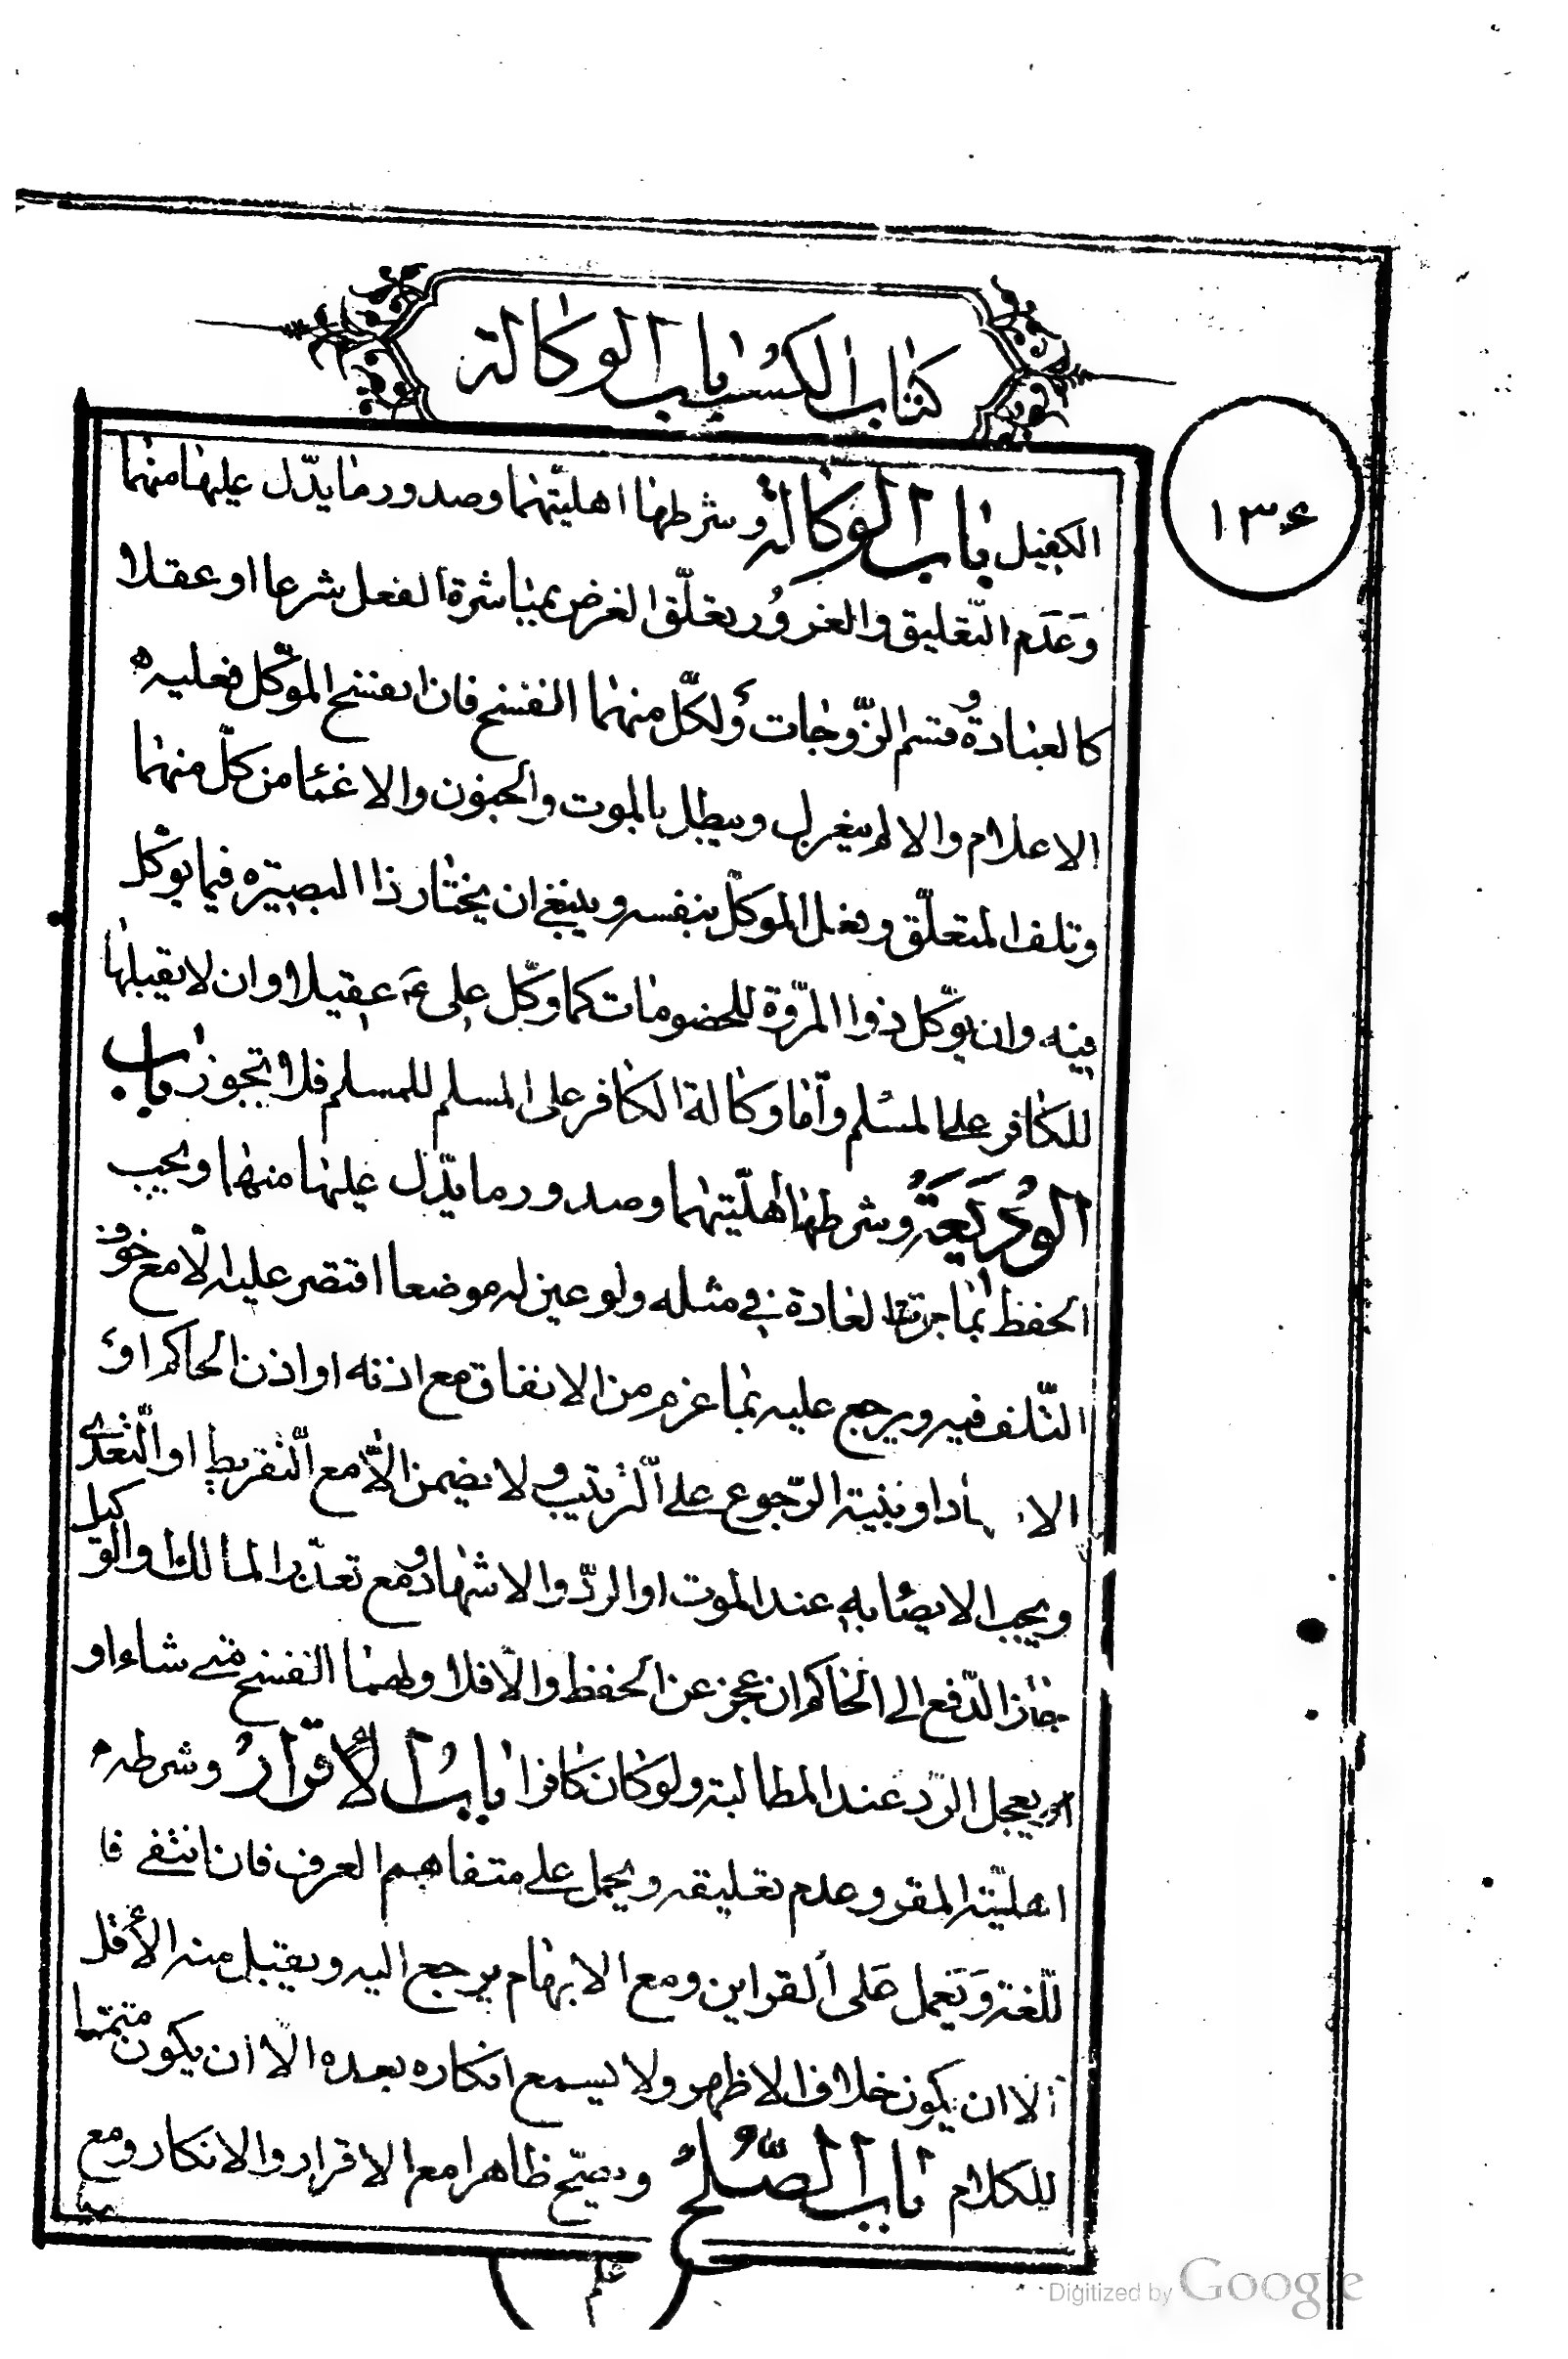 كتاب الكسب باب الوكالة
١٣۶
الكفيل باب الوكالة وشرطها اهليتهما وصدور ما يدّل عليها منهما
وَعَدَم التّعليق والغرور وتعلّق الغرض بمباشرة الفعل شرعا او عقلا
كالعبادة وقسم الزّوجات ولكلّ منهما الفسخ فان انفسخ الموكّل فعليه
الاعلام والا لم ينعزل ويبطل بالموت والجنون والاغما من كلّ منهما
وتلف المتعلّق وفعل الموكّل بنفسه وينبغي ان يختار ذا البصيرة فيما يوكّل
فيه وان يوكّل ذوا المروّة للخصومات كما وكّل علي ع عقيلا وان لا يقبلها
للكافر على المسلم وأمّا وكالة الكافر على المسلم للمسلم فلا تجوز باب
الوديعة وشرطها أهليّتهما وصدور ما يدّل عليها منهما ويجب
الحفظ بما جرت العادة في مثله ولو عين له موضعا اقتصر عليه الّا مع خوف
التّلف فيه ويرجع عليه بما غرم من الانفاق مع اذنه او اذن الحاكم او
الا اد او بنية الرّجوع على التّرتيب ولا يضمن الّا مع التّفريط او التّعدّى
ويجب الايصاء به عند الموت او الردّ والاشهاد ومع تعذّر المالك والوكيل
جاز الدّفع الى الحاكم ان عجز عن الحفظ والّا فلا ولهما الفسخ متى شاءا و
يعجل الرّد عند المطالبة ولو كان كافرا باب الأقرار وشرطه
اهليّة المقر وعدم تعليقه ويحمل على متفاهم العرف فان انتفى فا
للّغة وَيَعمل عَلى القراين ومع الابهام يرجع اليه ويقبل منه الأقل
الّا ان يكون خلاف الاظهر ولا يسمع انكاره بعده الّا ان يكون متمما
للكلام باب الصّلح ويصحّ ظاهرا مع الاقرار والانكار ومع
علم
Digitized by Google